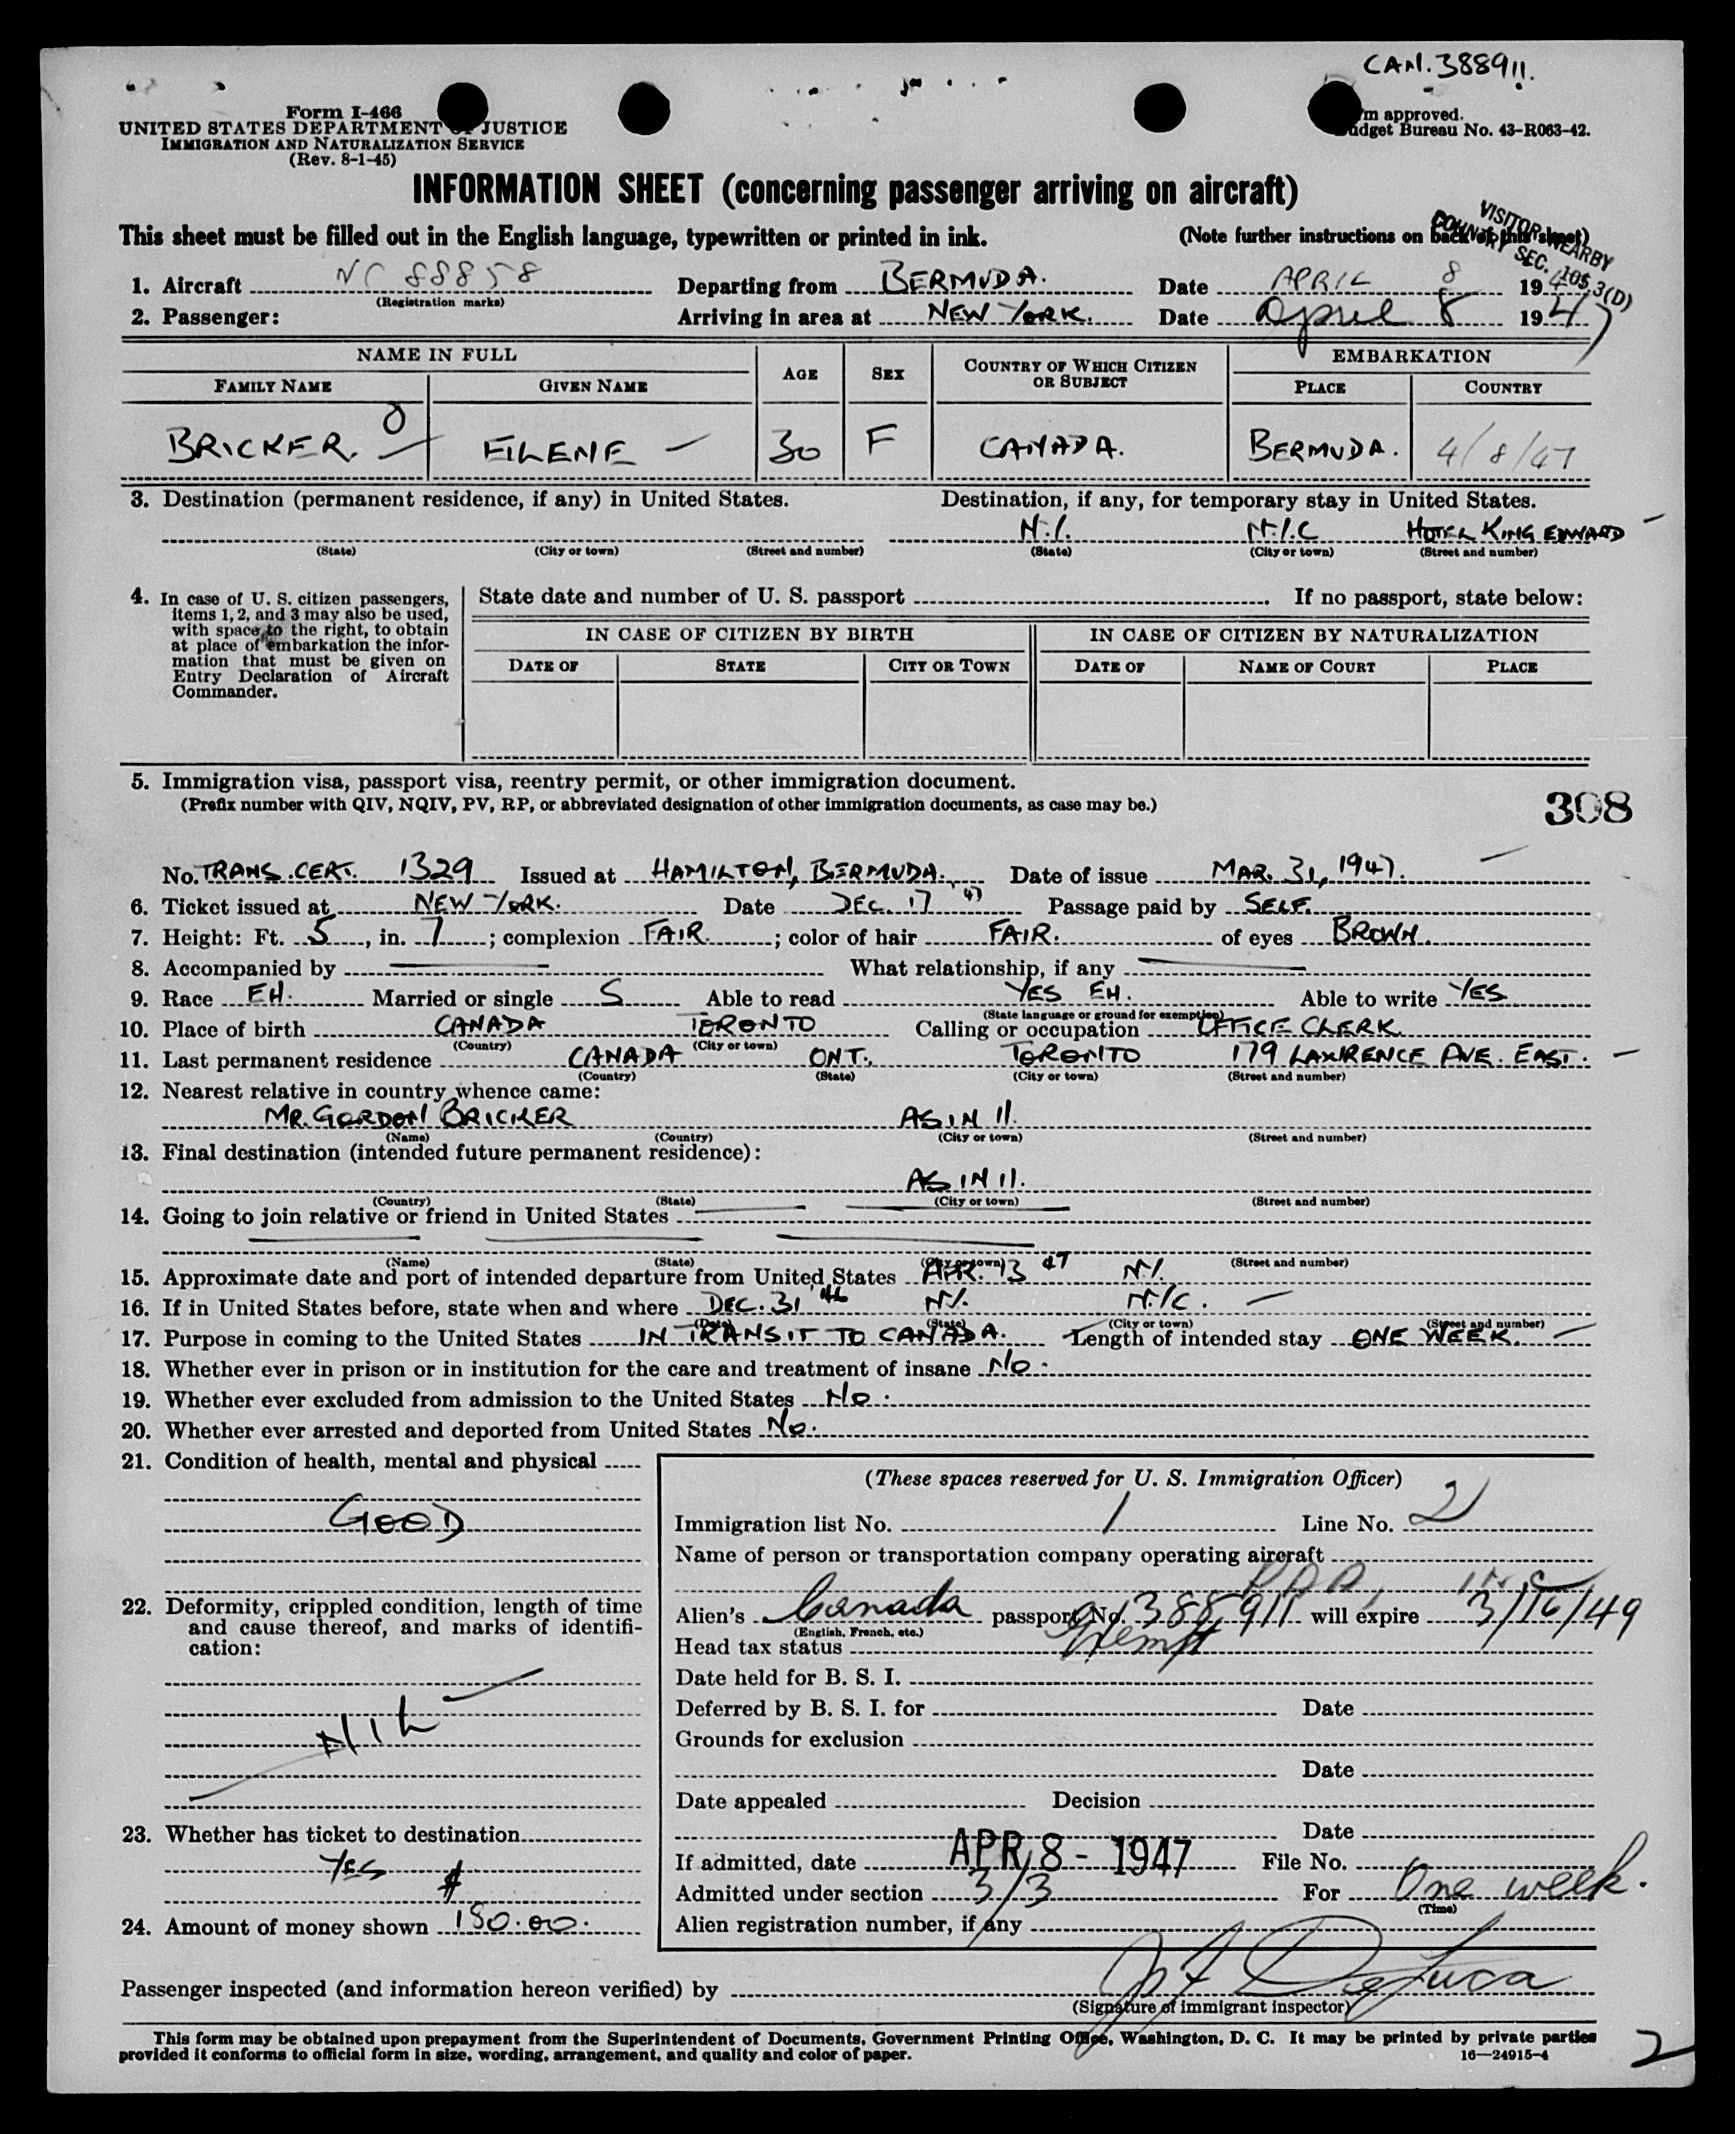 CAN. 388911.
Form I-466
UNITED STATES DEPARTMENT OF JUSTICE
IMMIGRATION AND NATURALIZATION SERVICE
(Rev. 8-1-45)
m approved.
udget Bureau No. 43-R063-42.
INFORMATION SHEET (concerning passenger arriving on aircraft)
This sheet must be filled out in the English language, typewritten or printed in ink. (Note further instructions on back of this sheet)
VISITOR NEARBY
COUNTRY SEC. 105.3(D)
1. Aircraft NC 88858 Departing from BERMUDA. Date APRIL 8 1947
(Registration marks)
2. Passenger: Arriving in area at NEW YORK. Date April 8 1947
NAME IN FULL AGE SEX COUNTRY OF WHICH CITIZEN OR SUBJECT EMBARKATION
FAMILY NAME GIVEN NAME PLACE COUNTRY
BRICKER. EILENE 30 F CANADA. BERMUDA. 4/8/47
3. Destination (permanent residence, if any) in United States. Destination, if any, for temporary stay in United States.
N.Y. N.Y.C HOTEL KING EDWARD
(State) (City or town) (Street and number) (State) (City or town) (Street and number)
4. In case of U. S. citizen passengers,
items 1, 2, and 3 may also be used,
with space to the right, to obtain
at place of embarkation the infor-
mation that must be given on
Entry Declaration of Aircraft
Commander.
State date and number of U. S. passport If no passport, state below:
IN CASE OF CITIZEN BY BIRTH IN CASE OF CITIZEN BY NATURALIZATION
DATE OF STATE CITY OR TOWN DATE OF NAME OF COURT PLACE
5. Immigration visa, passport visa, reentry permit, or other immigration document.
(Prefix number with QIV, NQIV, PV, RP, or abbreviated designation of other immigration documents, as case may be.)
308
No. TRANS. CERT. 1329 Issued at HAMILTON, BERMUDA. Date of issue MAR. 31, 1947.
6. Ticket issued at NEW YORK. Date DEC. 17 '47 Passage paid by SELF.
7. Height: Ft. 5, in. 7; complexion FAIR; color of hair FAIR. of eyes BROWN.
8. Accompanied by What relationship, if any
9. Race EH. Married or single S Able to read YES EH. Able to write YES
(State language or ground for exemption)
10. Place of birth CANADA TORONTO Calling or occupation OFFICE CLERK
(Country) (City or town)
11. Last permanent residence CANADA ONT. TORONTO 179 LAWRENCE AVE. EAST.
(Country) (State) (City or town) (Street and number)
12. Nearest relative in country whence came:
MR. GORDON BRICKER AS IN 11.
(Name) (Country) (City or town) (Street and number)
13. Final destination (intended future permanent residence):
AS IN 11.
(Country) (State) (City or town) (Street and number)
14. Going to join relative or friend in United States
(Name) (State) (City or town) (Street and number)
15. Approximate date and port of intended departure from United States APR. 13 47 N.Y.
16. If in United States before, state when and where DEC. 31 '46 N.Y. N.Y.C.
(Date) (State) (City or town) (Street and number)
17. Purpose in coming to the United States IN TRANSIT TO CANADA. Length of intended stay ONE WEEK.
18. Whether ever in prison or in institution for the care and treatment of insane NO.
19. Whether ever excluded from admission to the United States NO.
20. Whether ever arrested and deported from United States NO.
21. Condition of health, mental and physical
GOOD
22. Deformity, crippled condition, length of time
and cause thereof, and marks of identifi-
cation:
NIL
23. Whether has ticket to destination
YES
24. Amount of money shown $150.00.
(These spaces reserved for U. S. Immigration Officer)
Immigration list No. 1 Line No. 2
Name of person or transportation company operating aircraft
P.A.A., Inc
Alien's Canada passport No. 388911 will expire 3/16/49
(English, French, etc.)
Head tax status Exempt
Date held for B. S. I.
Deferred by B. S. I. for Date
Grounds for exclusion
Date
Date appealed Decision
Date
If admitted, date APR 8 - 1947 File No.
Admitted under section 3/3 For One week.
(Time)
Alien registration number, if any
Passenger inspected (and information hereon verified) by
(Signature of immigrant inspector)
This form may be obtained upon prepayment from the Superintendent of Documents, Government Printing Office, Washington, D. C. It may be printed by private parties
provided it conforms to official form in size, wording, arrangement, and quality and color of paper. 16—24915-4
2